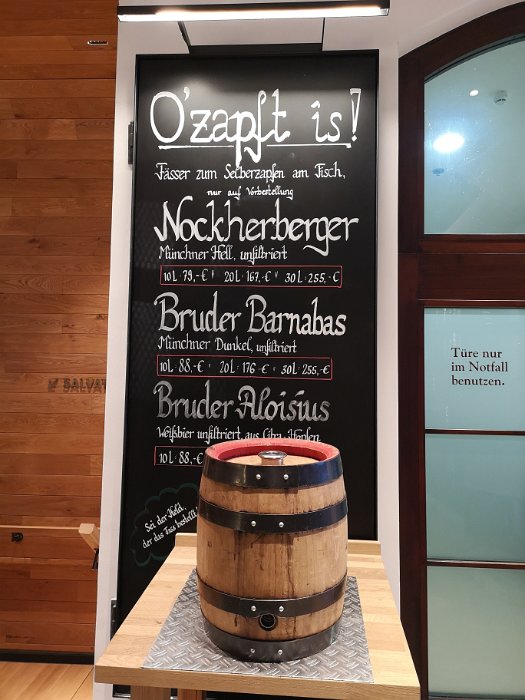 O'zapft is!
Fässer zum Selberzapfen am Tisch,
nur auf Vorbestellung
Nockherberger
Münchner Hell, unfiltriert
10L·79,-€ 20L·167,-€ 30L·255,-€
Bruder Barnabas
Münchner Dunkel, unfiltriert
10L·88,-€ 20L·176-€ 30L·255,-€
Bruder Aloisius
Weißbier unfiltriert, aus Citra-Hopfen
10L·88,-€
Sei der Held,
der das Fass bestellt!
SALVAT
Türe nur
im Notfall
benutzen.